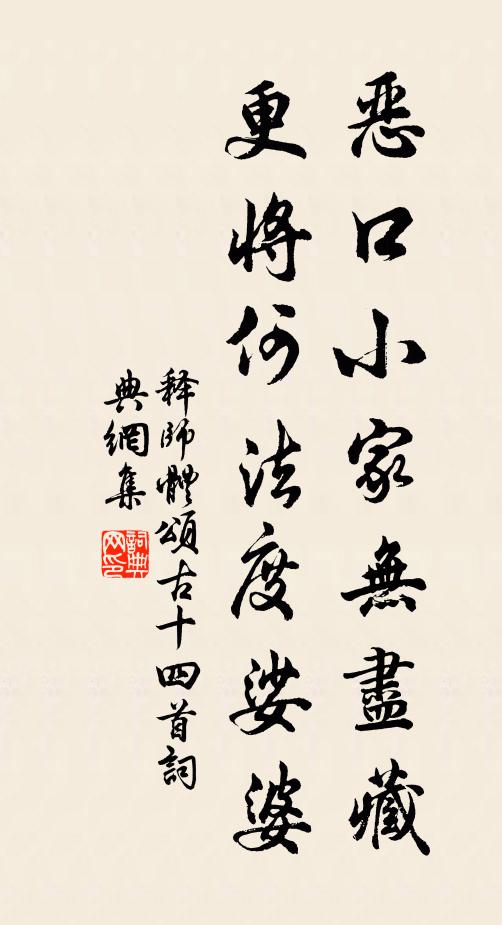 惡口小家無盡藏
更將何法度娑婆
释師體頌古十四首詞
典網集
詞典
网印